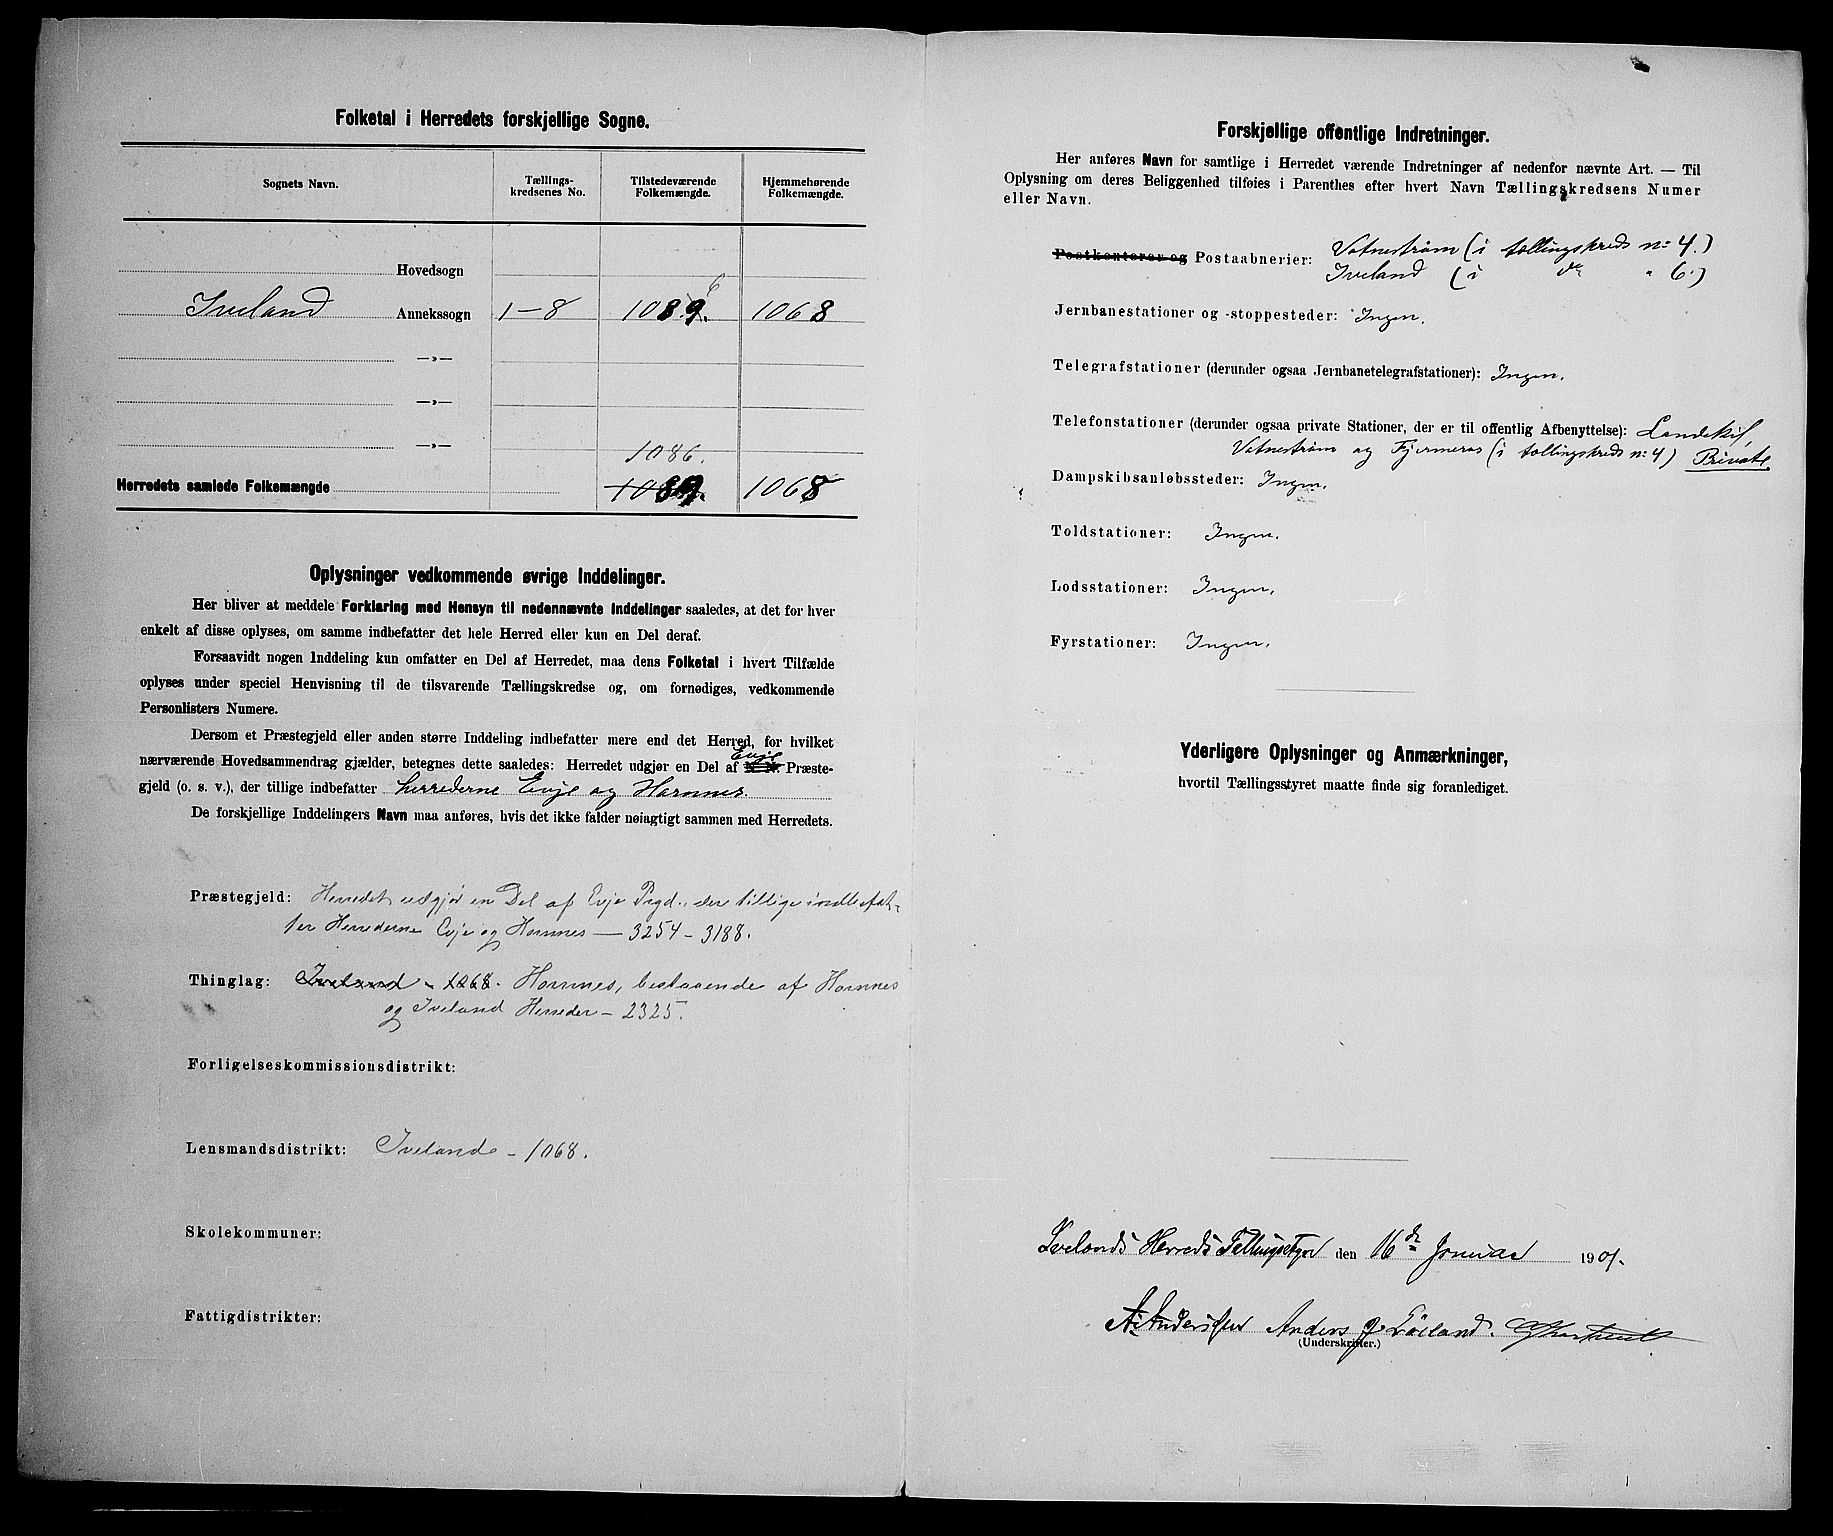 Folketal i Herredets forskjellige Sogne.
Sognets Navn.
Tællings-
kredsenes No.
Tilstedeværende
Folkemængde.
Hjemmehørende
Folkemængde.
Hovedsogn
6
Iveland Annekssogn 1–8 1089. 1068
—»—
—»—
—»—
1086.
Herredets samlede Folkemængde 1089. 1068
Oplysninger vedkommende øvrige Inddelinger.
Her bliver at meddele Forklaring med Hensyn til nedennævnte Inddelinger saaledes, at det for hver
enkelt af disse oplyses, om samme indbefatter det hele Herred eller kun en Del deraf.
Forsaavidt nogen Inddeling kun omfatter en Del af Herredet, maa dens Folketal i hvert Tilfælde
oplyses under speciel Henvisning til de tilsvarende Tællingskredse og, om fornødiges, vedkommende
Personlisters Numere.
Dersom et Præstegjeld eller anden større Inddeling indbefatter mere end det Herred, for hvilket
Evje
nærværende Hovedsammendrag gjælder, betegnes dette saaledes: Herredet udgjør en Del af N. N. Præste-
gjeld (o. s. v.), der tillige indbefatter herrederne Evje og Hornnes.
De forskjellige Inddelingers Navn maa anføres, hvis det ikke falder nøiagtigt sammen med Herredets.
Præstegjeld: Herredet udgjør en Del af Evje Prgd., der tillige indbefat-
ter Herrederne Evje og Hornnes — 3254 – 3188.
Thinglag: Iveland – 1068. Hornnes, bestaaende af Hornnes
og Iveland Herreder – 2325.
Forligelseskommissionsdistrikt:
Lensmandsdistrikt: Iveland – 1068.
Skolekommuner:
Fattigdistrikter:
Forskjellige offentlige Indretninger.
Her anføres Navn for samtlige i Herredet værende Indretninger af nedenfor nævnte Art. — Til
Oplysning om deres Beliggenhed tilføies i Parenthes efter hvert Navn Tællingskredsens Numer
eller Navn.
Postkontorer og Postaabnerier: Vatnestrøm (i tællingskreds no 4.)
Iveland (i do " 6.)
Jernbanestationer og -stoppesteder: Ingen.
Telegrafstationer (derunder ogsaa Jernbanetelegrafstationer): Ingen.
Telefonstationer (derunder ogsaa private Stationer, der er til offentlig Afbenyttelse): Landskil,
Vatnestrøm og Fjermeros (i tællingskreds no 4) Private
Dampskibsanløbssteder: Ingen.
Toldstationer: Ingen.
Lodsstationer: Ingen.
Fyrstationer: Ingen.
Yderligere Oplysninger og Anmærkninger,
hvortil Tællingsstyret maatte finde sig foranlediget.
Ivelands Herreds Tællingsstyre den 16de Januar 1901.
Anders J. Løiland.
(Underskrifter.)